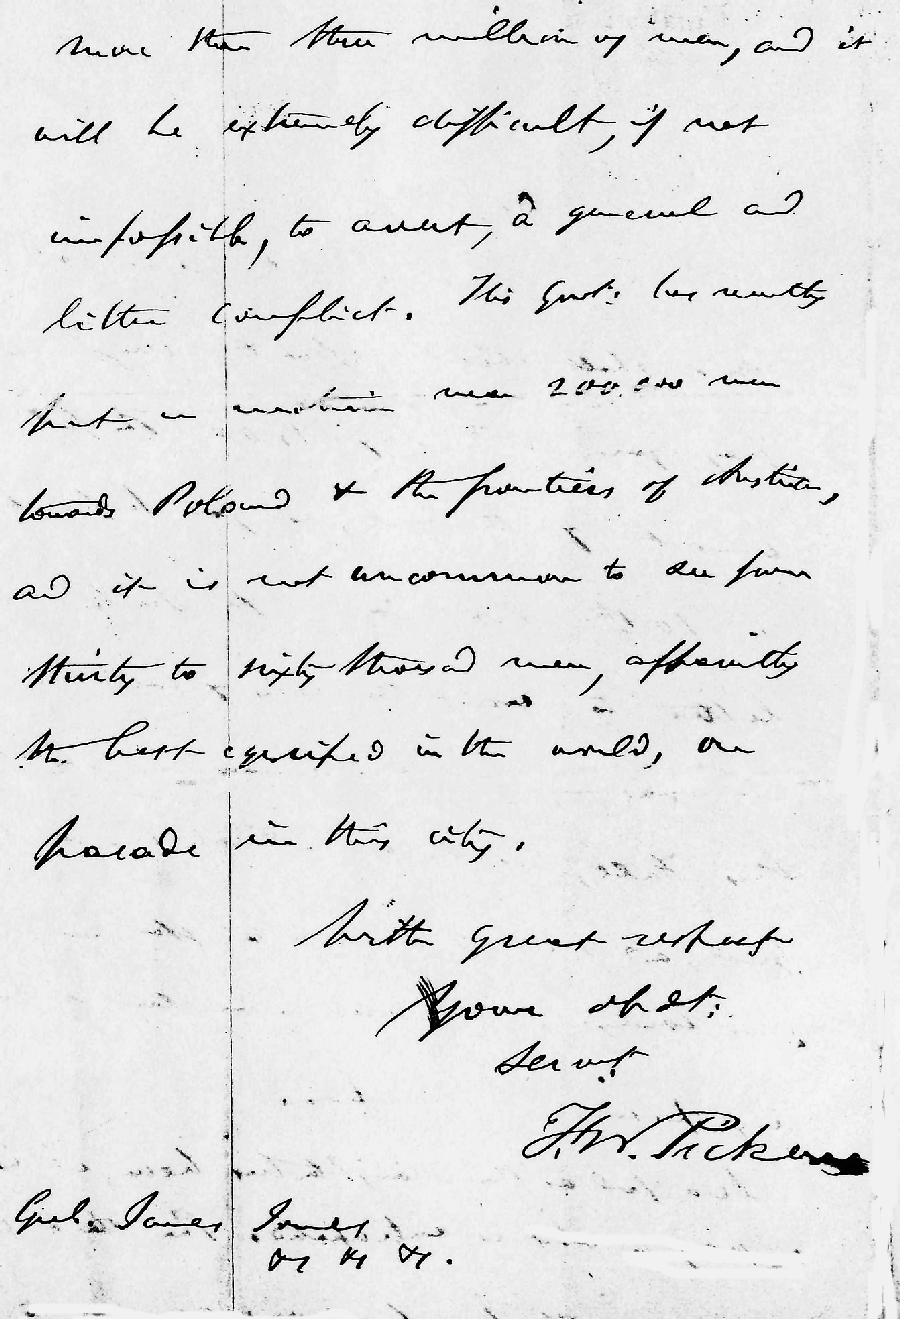 more than three million of men, and it
will be extremely difficult, if not
impossible, to avert, a general and
bitter conflict. This Govt: has recently
put in motion near 200,000 men
towards Poland & the frontiers of Austria,
and it is not uncommon to see from
thirty to sixty thousand men, apparently
the best equiped in the world, on
parade in this city.
With great respect
Your obdt:
servt
F. W. Pickens
Genl. James Jones
&c &c &c.